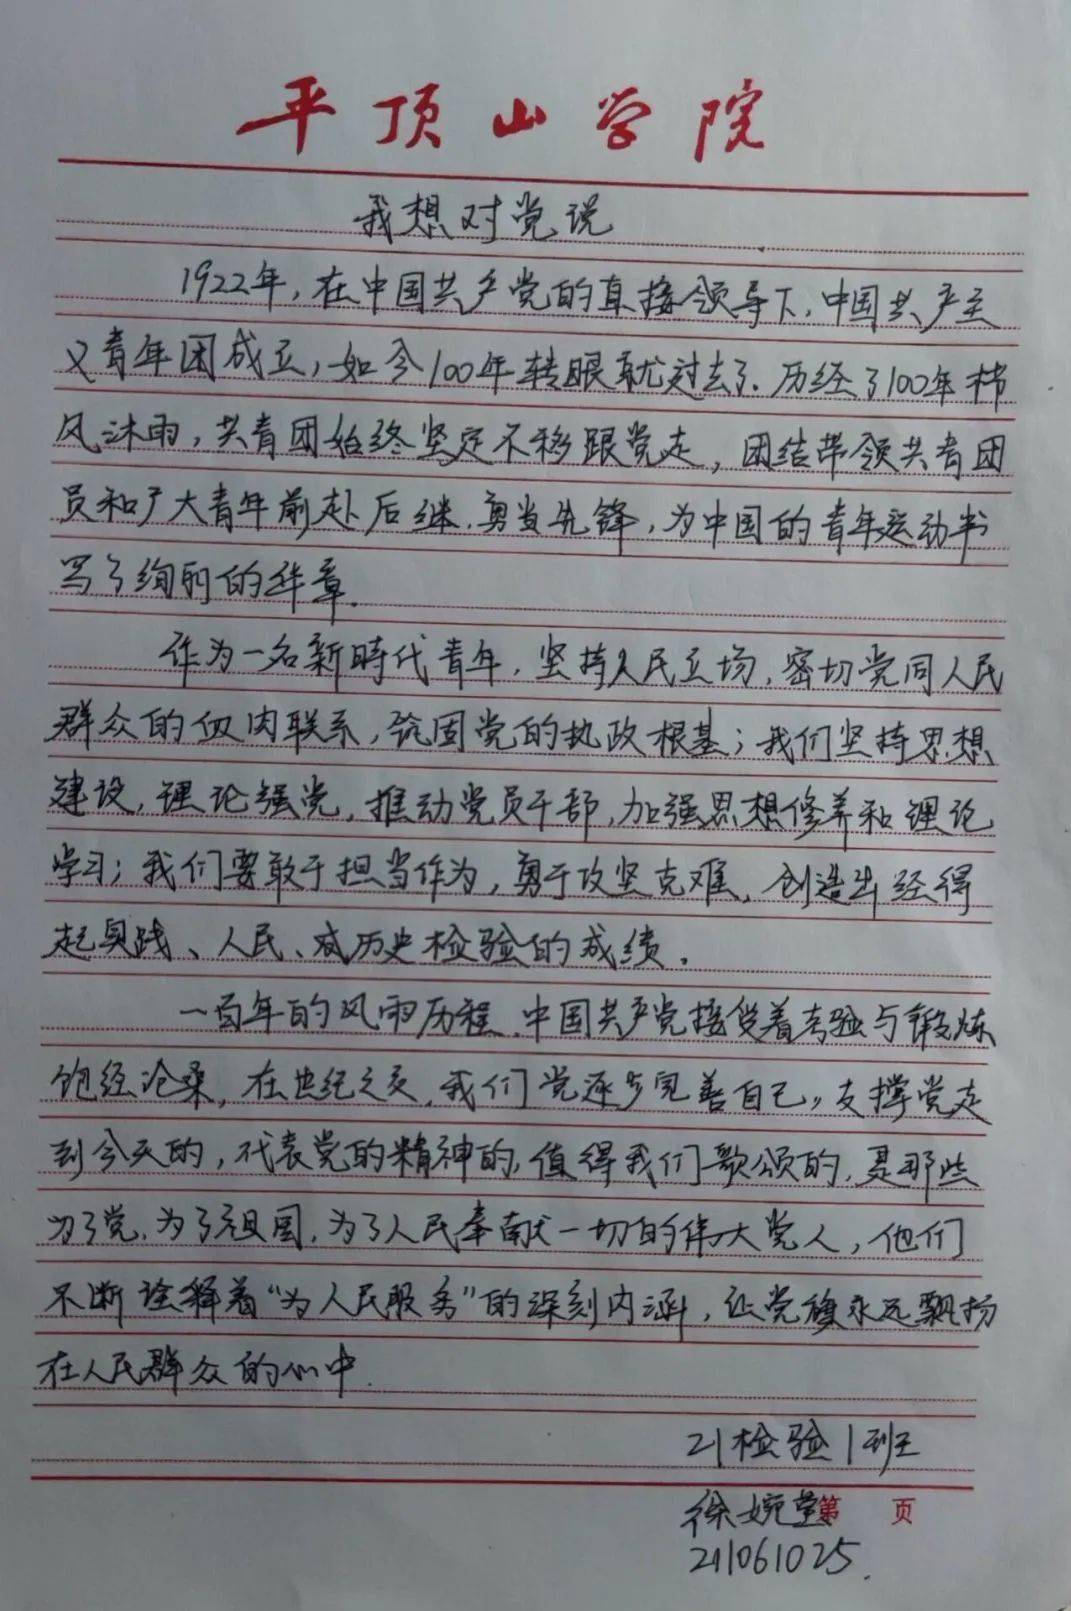 平顶山学院
我想对党说
1922年,在中国共产党的直接领导下,中国共产主
义青年团成立,如今100年转眼就过去了.历经了100年栉
风沐雨,共青团始终坚定不移跟党走,团结带领共青团
员和广大青年前赴后继.勇当先锋,为中国的青年运动书
写了绚丽的华章.
作为一名新時代青年,坚持人民立场,密切党同人民
群众的血肉联系,巩固党的执政根基;我们坚持思想
建设,理论强党,推动党员干部,加强思想修养和理论
学习;我们要敢于担当作为,勇于攻坚克难,创造出经得
起实践、人民、历史检验的成绩.
一百年的风雨历程.中国共产党接受着考验与锻炼
饱经沧桑,在世纪之交,我们党逐步完善自己,支撑党走
到今天的,代表党的精神的,值得我们歌颂的,是那些
为了党,为了祖国,为了人民奉献一切的伟大党人,他们
不断诠释着“为人民服务”的深刻内涵,让党旗永远飘扬
在人民群众的心中.
21检验1班
徐婉莹
第 页
211061025.